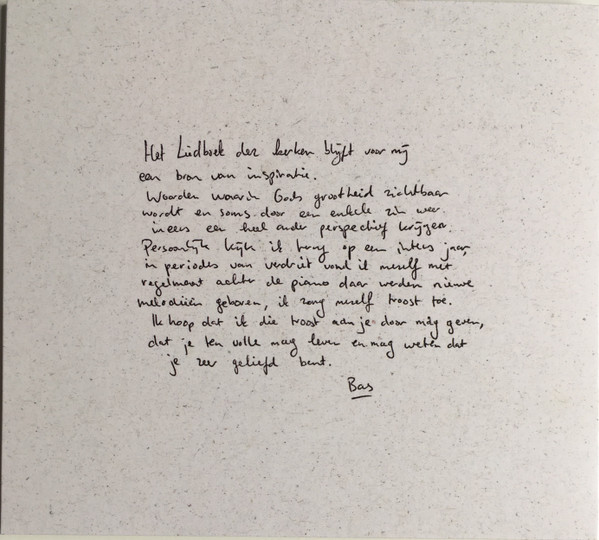 Het Liedboek der kerken blijft voor mij
een bron van inspiratie.
Woorden waarin Gods grootheid zichtbaar
wordt en soms door een enkele zin weer
ineens een heel ander perspectief krijgen.
Persoonlijk kijk ik terug op een intens jaar,
in periodes van verdriet vond ik mezelf met
regelmaat achter de piano daar werden nieuwe
melodieën geboren, ik zong mezelf troost toe.
Ik hoop dat ik die troost aan je door mag geven,
dat je ten volle mag leven en mag weten dat
je zeer geliefd bent.
Bas